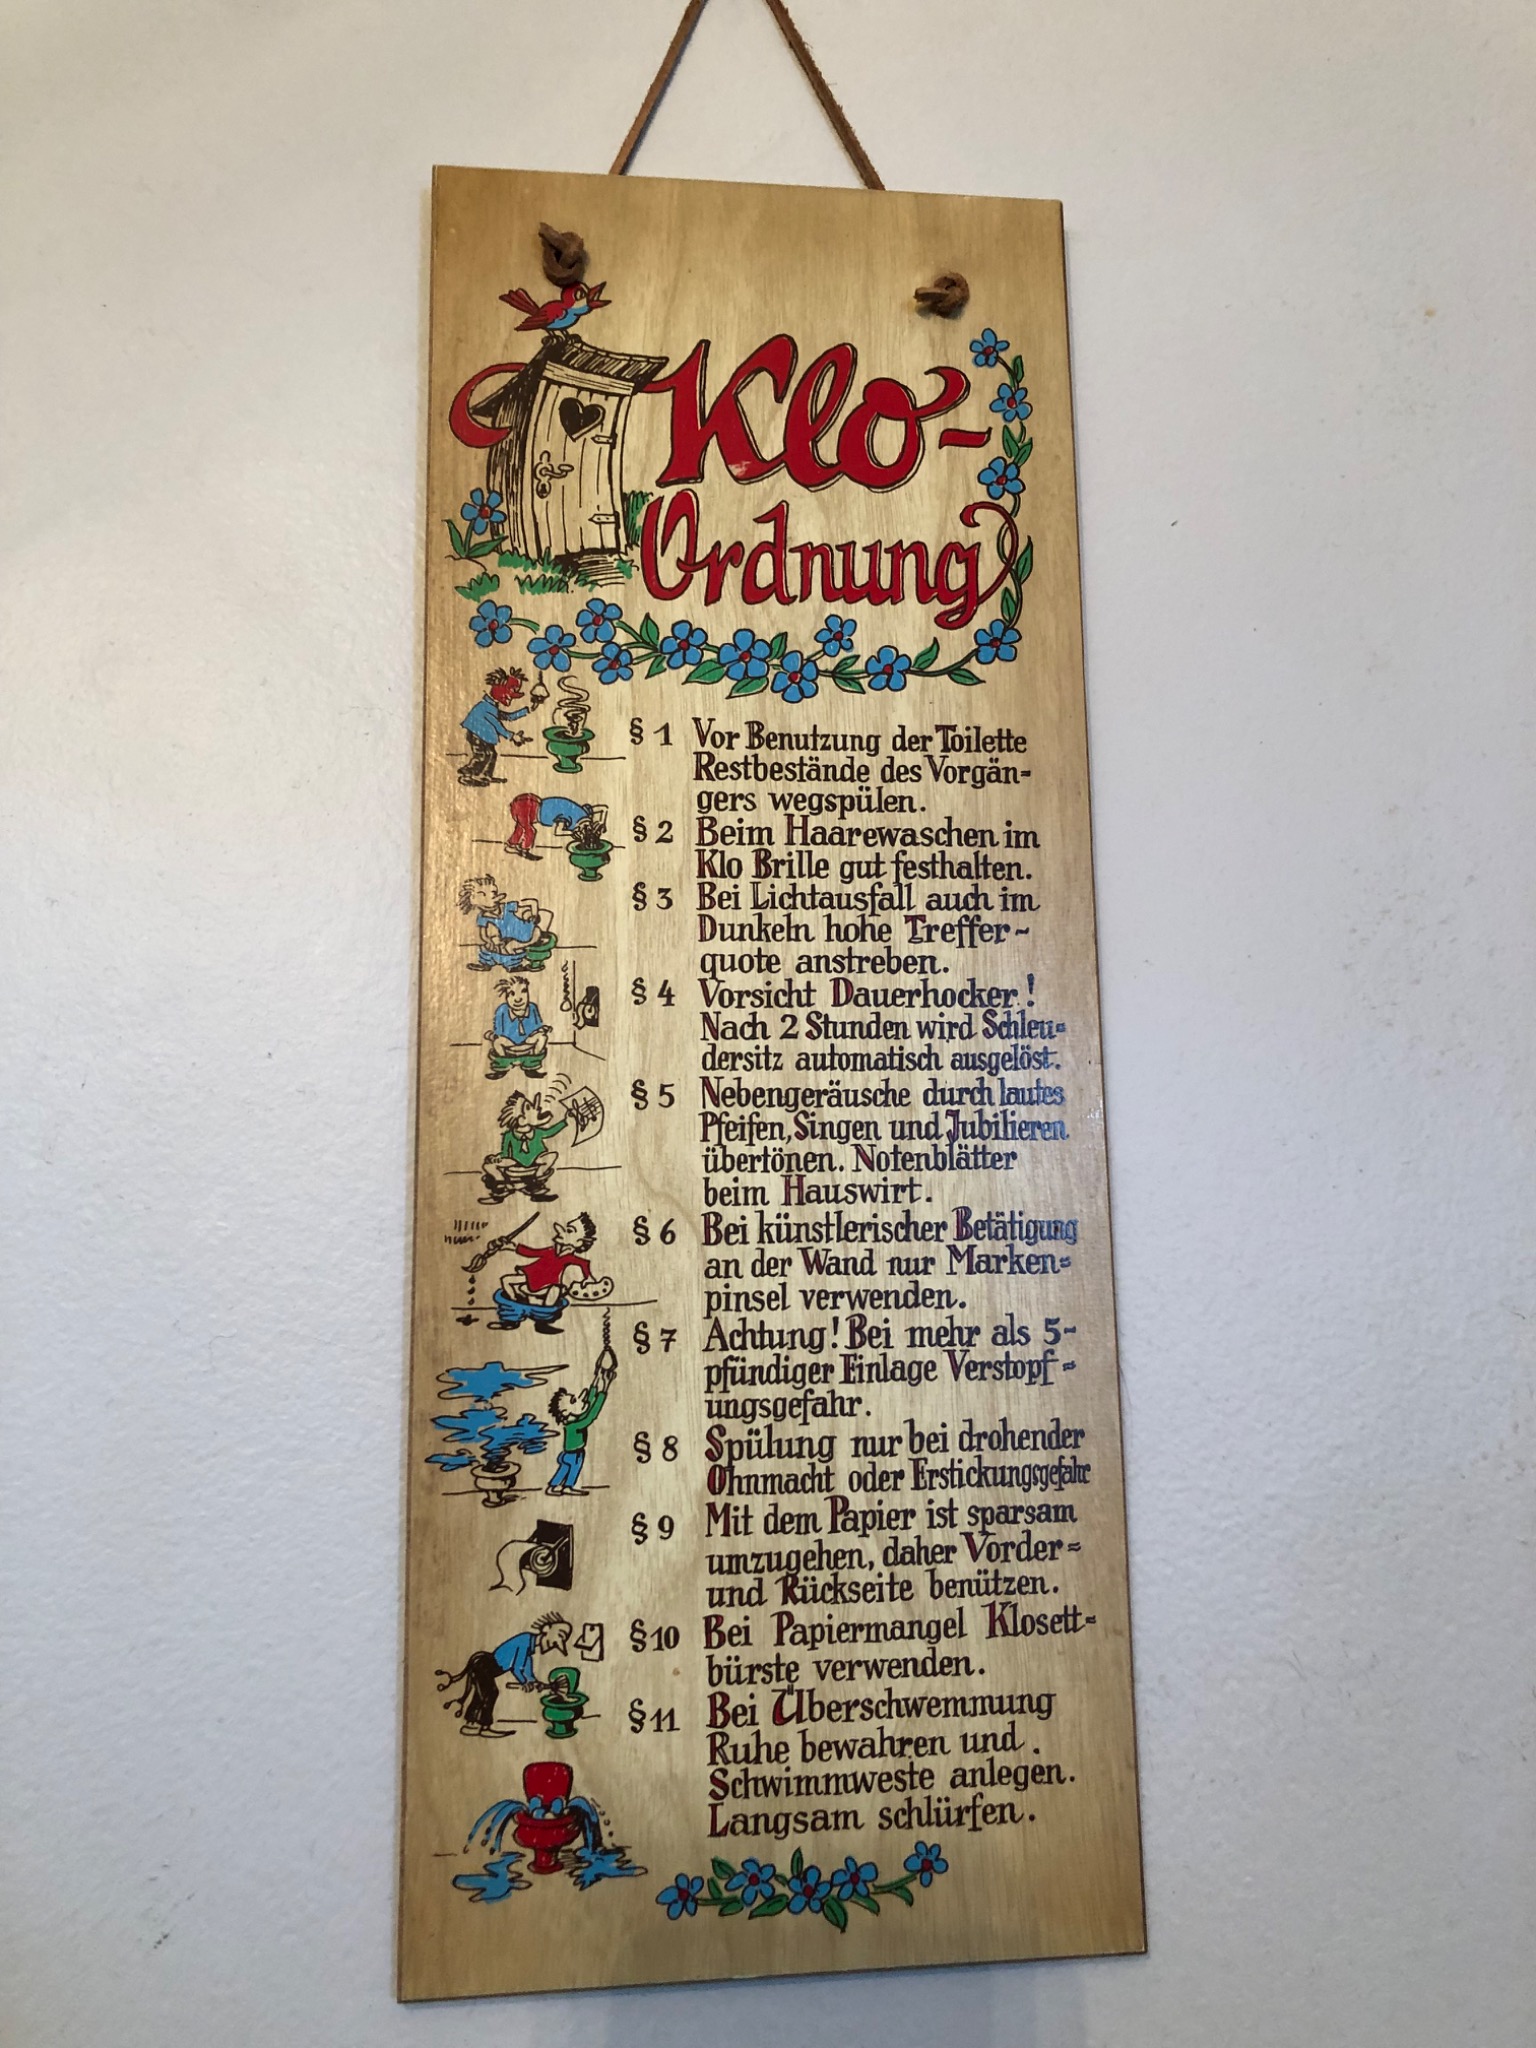 Klo-
Ordnung
§ 1 Vor Benutzung der Toilette
Restbestände des Vorgän=
gers wegspülen.
§ 2 Beim Haarewaschen im
Klo Brille gut festhalten.
§ 3 Bei Lichtausfall auch im
Dunkeln hohe Treffer-
quote anstreben.
§ 4 Vorsicht Dauerhocker!
Nach 2 Stunden wird Schleu=
dersitz automatisch ausgelöst.
§ 5 Nebengeräusche durch lautes
Pfeifen, Singen und Jubilieren
übertönen. Notenblätter
beim Hauswirt.
§ 6 Bei künstlerischer Betätigung
an der Wand nur Marken=
pinsel verwenden.
§ 7 Achtung! Bei mehr als 5-
pfündiger Einlage Verstopf=
ungsgefahr.
§ 8 Spülung nur bei drohender
Ohnmacht oder Erstickungsgefahr
§ 9 Mit dem Papier ist sparsam
umzugehen, daher Vorder=
und Rückseite benützen.
§ 10 Bei Papiermangel Klosett=
bürste verwenden.
§ 11 Bei Überschwemmung
Ruhe bewahren und
Schwimmweste anlegen.
Langsam schlürfen.